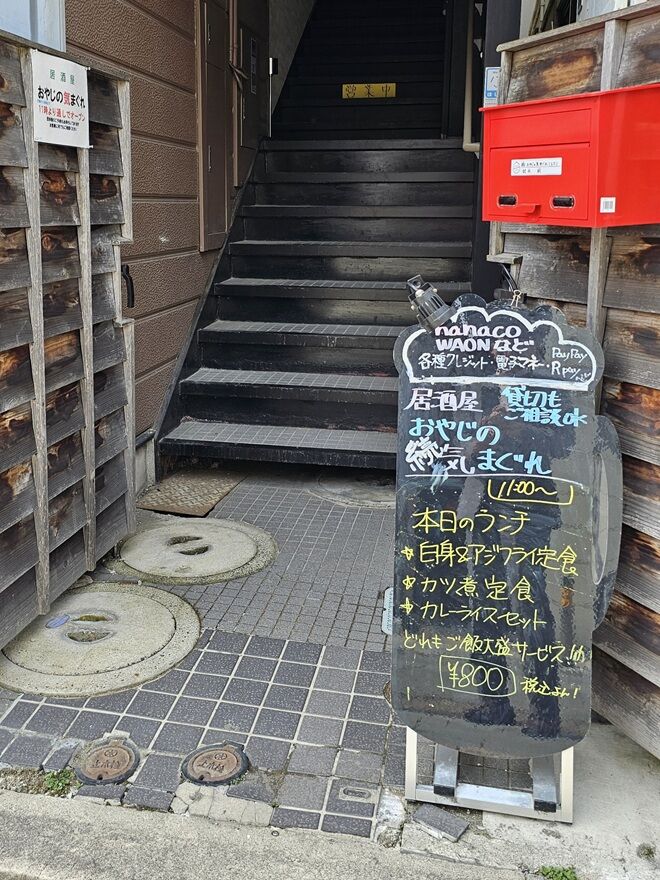 居酒屋
おやじの気まぐれ
11時より通しでオープン
営業中
nanaco
WAONなど
各種クレジット・電子マネー・PayPay
R pay
居酒屋 貸切も
ご相談OK
おやじの
続気まぐれ
11:00～
本日のランチ
自身&アジフライ定食
カツ煮定食
カレーライスセット
どれもご飯大盛サービス!
¥800 税込
止水栓